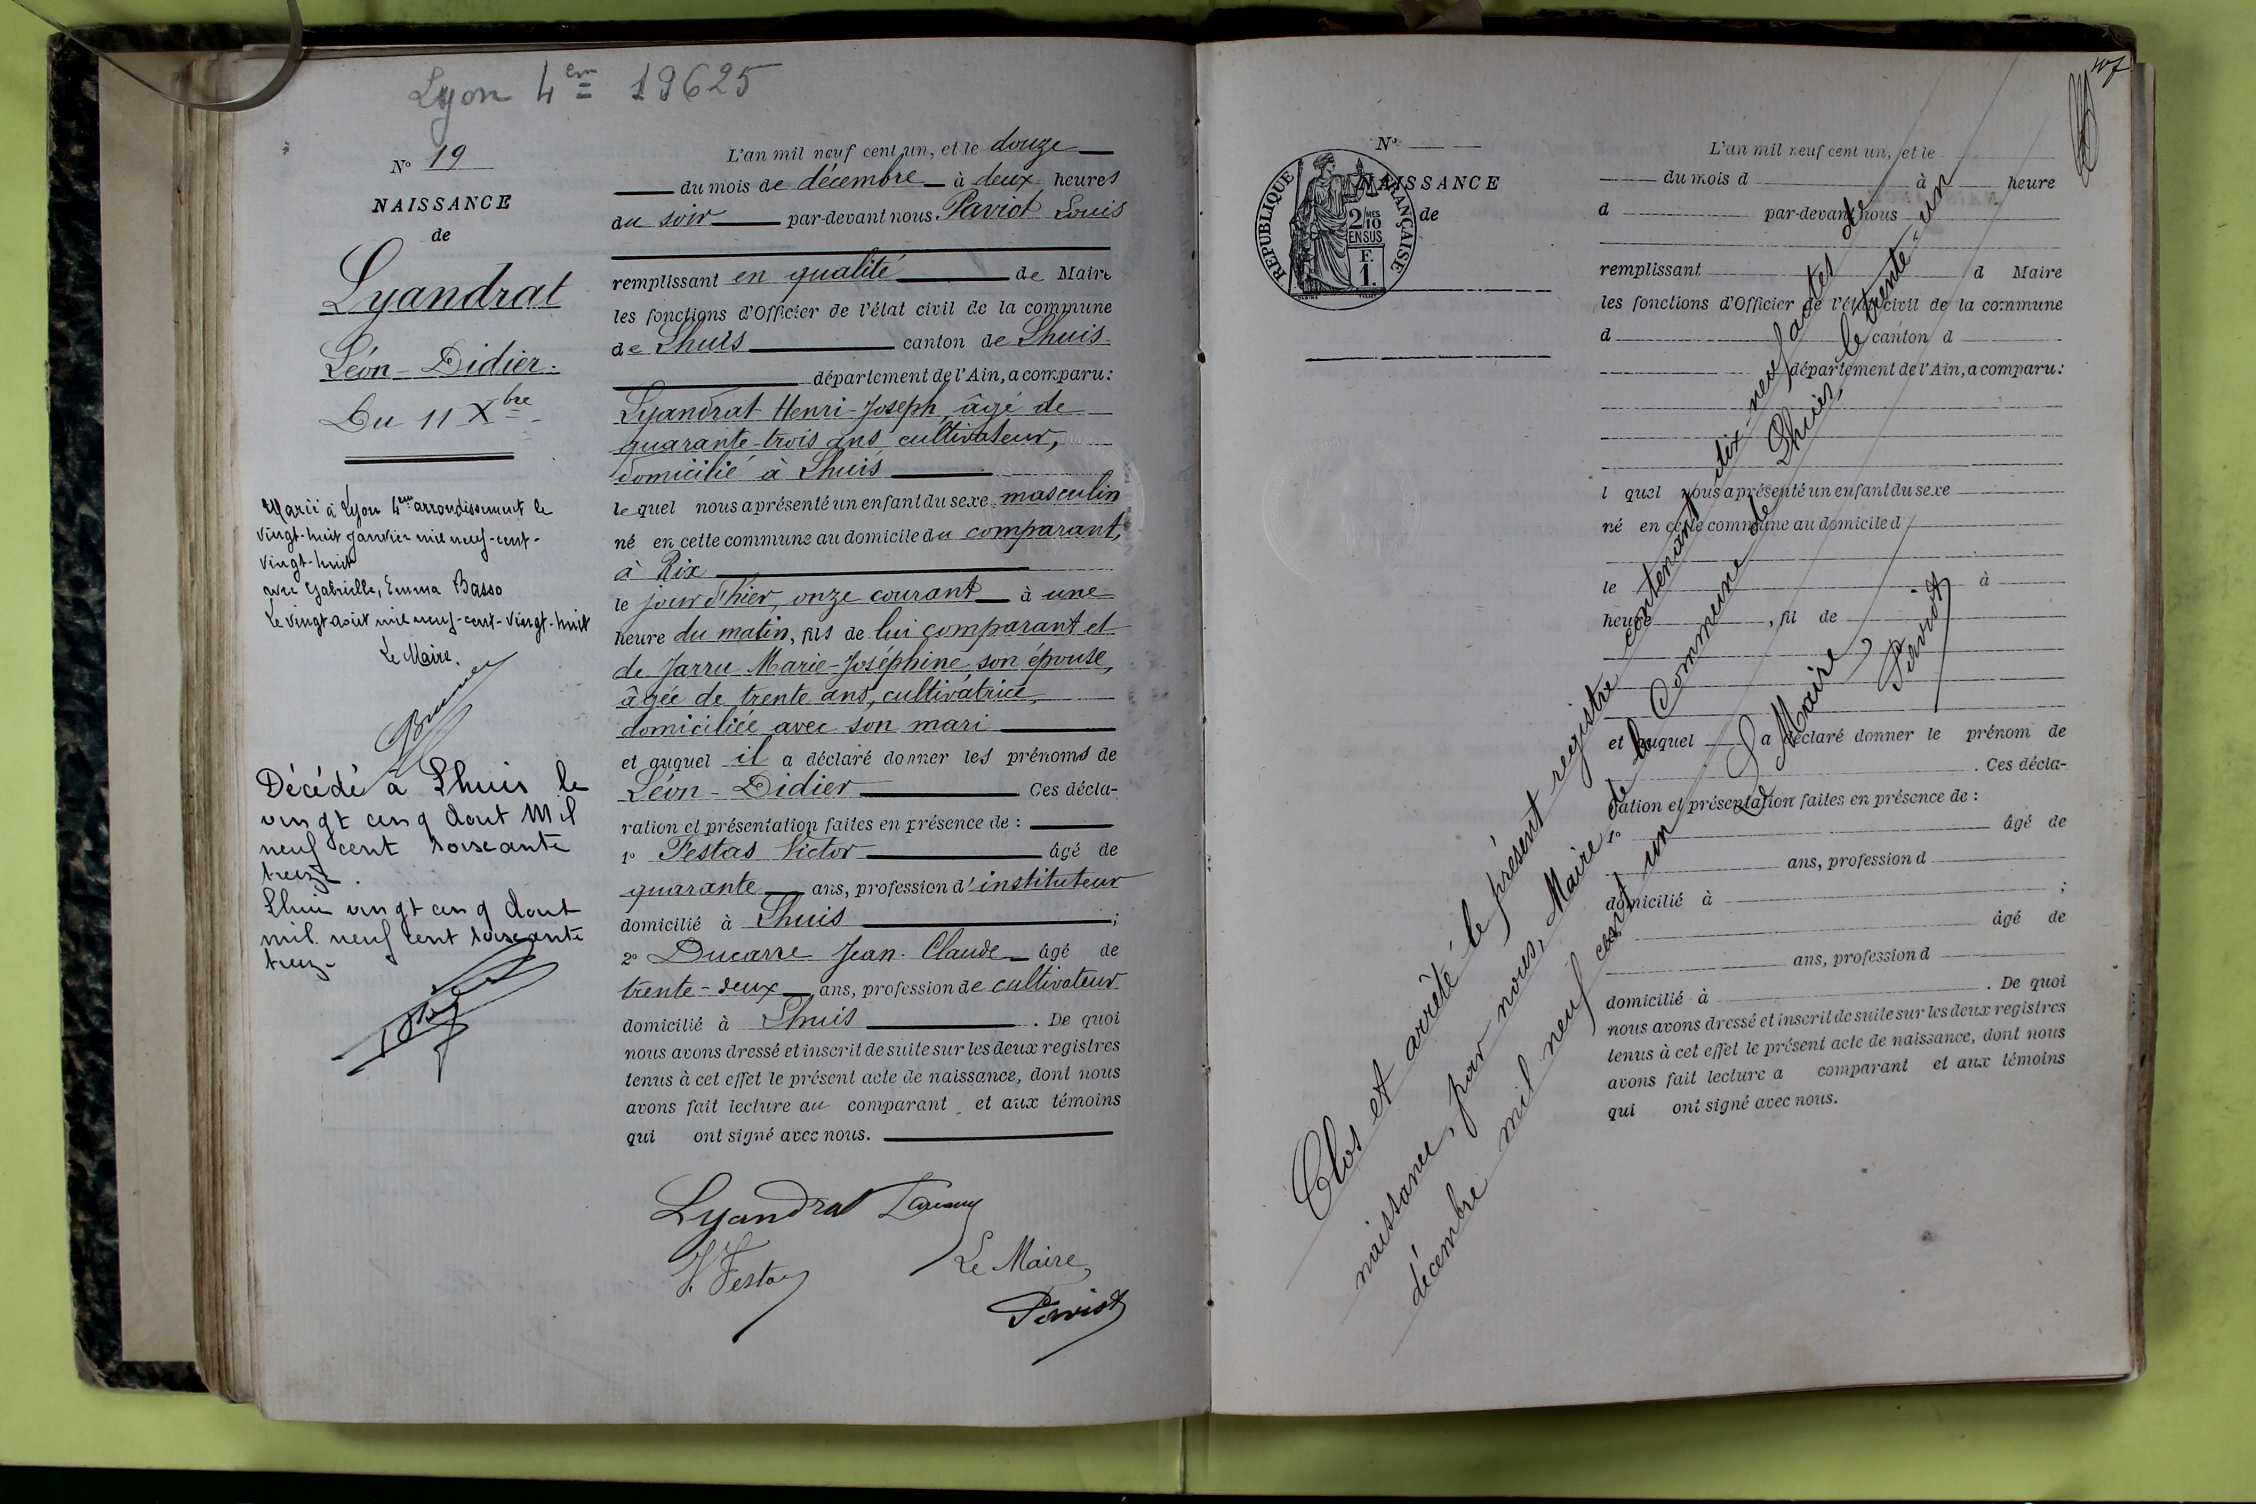 Lyon 4em 19625
N° 19
NAISSANCE
de
Lyandrat
Léon-Didier.
Du 11 Xbre
Marié à Lyon 4em arrondissement le
vingt-huit janvier mil neuf-cent-
vingt-huit
avec Gabrielle, Emma Basso
Le vingt août mil neuf-cent-vingt-huit
Le Maire.
Décédé à Lhuis le
vingt cinq aout Mil
neuf cent soixante
treize.
Lhuis vingt cinq aout
mil neuf cent soixante
treize
L'an mil neuf cent un, et le douze
du mois de décembre à deux heures
du soir par-devant nous Paviot Louis
remplissant en qualité de Maire
les fonctions d'Officier de l'état civil de la commune
de Lhuis canton de Lhuis
département de l'Ain, a comparu:
Lyandrat Henri-Joseph, âgé de
quarante-trois ans, cultivateur,
domicilié à Lhuis
lequel nous a présenté un enfant du sexe masculin
né en cette commune au domicile du comparant,
à Rix
le jour d'hier, onze courant à une
heure du matin, fils de lui comparant et
de Jarru Marie-Joséphine, son épouse,
âgée de trente ans, cultivatrice,
domiciliée avec son mari
et auquel il a déclaré donner les prénoms de
Léon-Didier Ces décla-
ration et présentation faites en présence de :
1° Festas Victor âgé de
quarante ans, profession d'instituteur
domicilié à Lhuis ;
2° Ducarre Jean-Claude âgé de
trente-deux ans, profession de cultivateur
domicilié à Lhuis . De quoi
nous avons dressé et inscrit de suite sur les deux registres
tenus à cet effet le présent acte de naissance, dont nous
avons fait lecture au comparant et aux témoins
qui ont signé avec nous.
Lyandrat
V. Festas
Le Maire
Paviot
N°
NAISSANCE
de
REPUBLIQUE FRANÇAISE
2/10 MES
EN SUS
F.
1.
L'an mil neuf cent un, et le
du mois d à heure
d par-devant nous
remplissant d Maire
les fonctions d'Officier de l'état civil de la commune
d canton d
département de l'Ain, a comparu:
l quel nous a présenté un enfant du sexe
né en cette commune au domicile d
le à
heure , fil de
et auquel a déclaré donner le prénom de
. Ces décla-
ration et présentation faites en présence de :
1° âgé de
ans, profession d
domicilié à ;
âgé de
ans, profession d
domicilié à . De quoi
nous avons dressé et inscrit de suite sur les deux registres
tenus à cet effet le présent acte de naissance, dont nous
avons fait lecture a comparant et aux témoins
qui ont signé avec nous.
Clos et arrêté le présent registre contenant dix-neuf actes de
naissance, par nous, Maire de la Commune de Lhuis, le trente-un
décembre mil neuf cent un
Le Maire,
Paviot